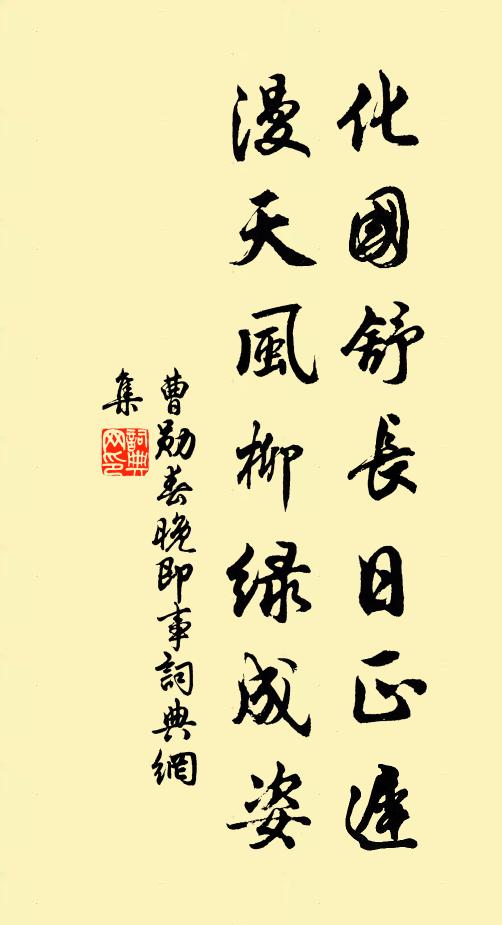 化國舒長日正遲
漫天風柳緑成姿
曹勛春晚即事詞典網
集
詞典网印